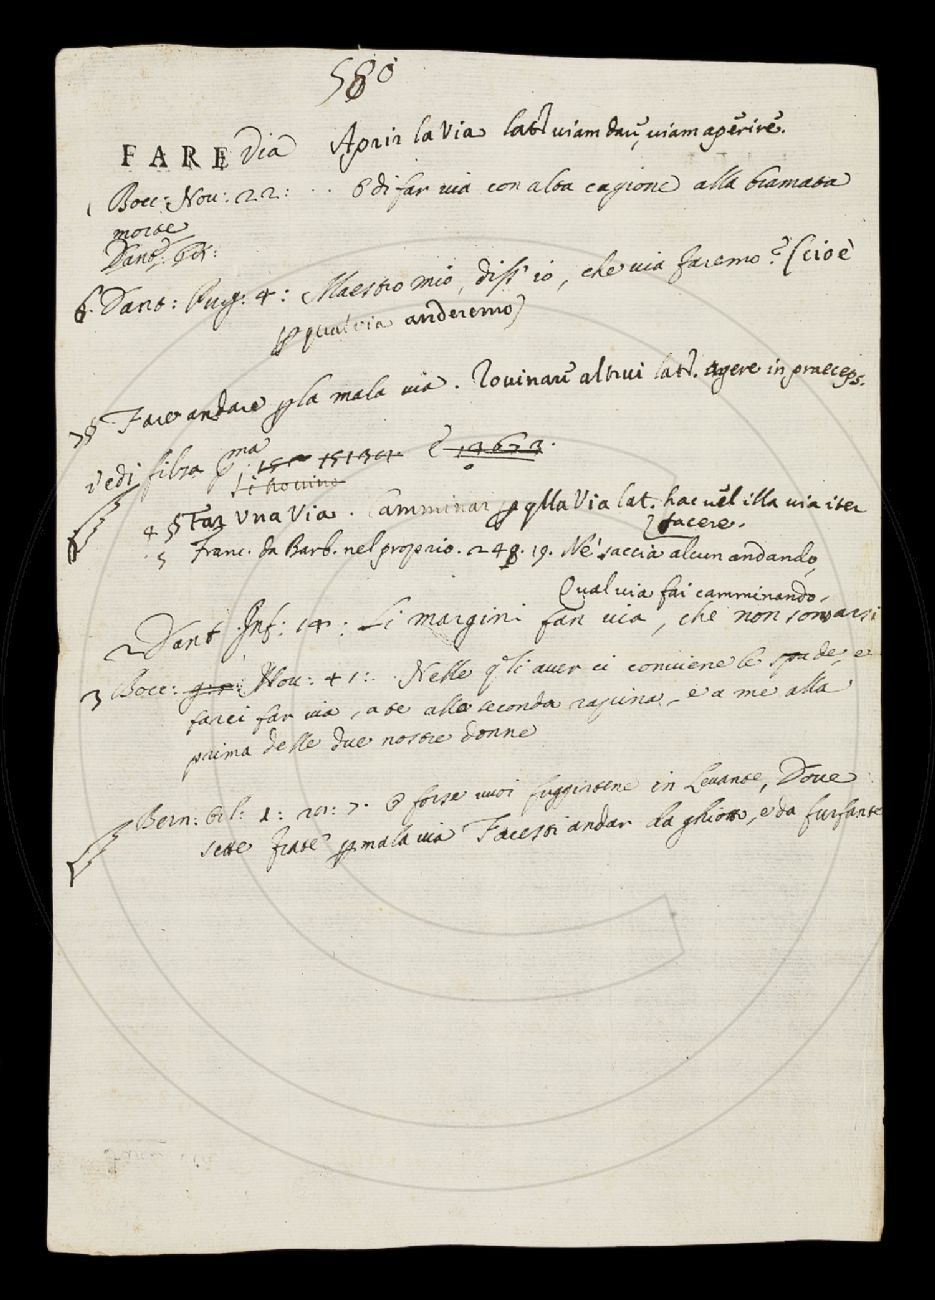 580
FARE Via Aprir la Via lat. viam dare, viam aperire.
1 Bocc: Nov: 22: .. o di far via con alta cagione alla bramata
morte
6. Dant: Purg: 4: Maestro mio, diss' io, che via faremo? (cioè
p qual via anderemo)
7 § Fare andare p la mala via. Rovinare altrui lat. agere in praeceps.
Vedi filza pma 1513 e 13673.
4 § Far Una Via. Camminar p qlla Via lat. hac vel illa via iter
facere.
5 Franc. da Barb. nel proprio. 248. 19. Ne' faccia alcun andando,
Qual via fai camminando.
2 Dant Inf: 14: Li margini fan via, che non son arsi
3 Bocc: Nov: 41: . Nelle qli aver ci conviene le spade, e
farci far via, a te alla seconda rapina, e a me alla
prima delle due nostre donne
Bern: Orl: 1: 20: 7. O forse vuoi fuggirtene in Levante, Dove
sette frate p mala via Facesti andar da ghiotto, e da furfante